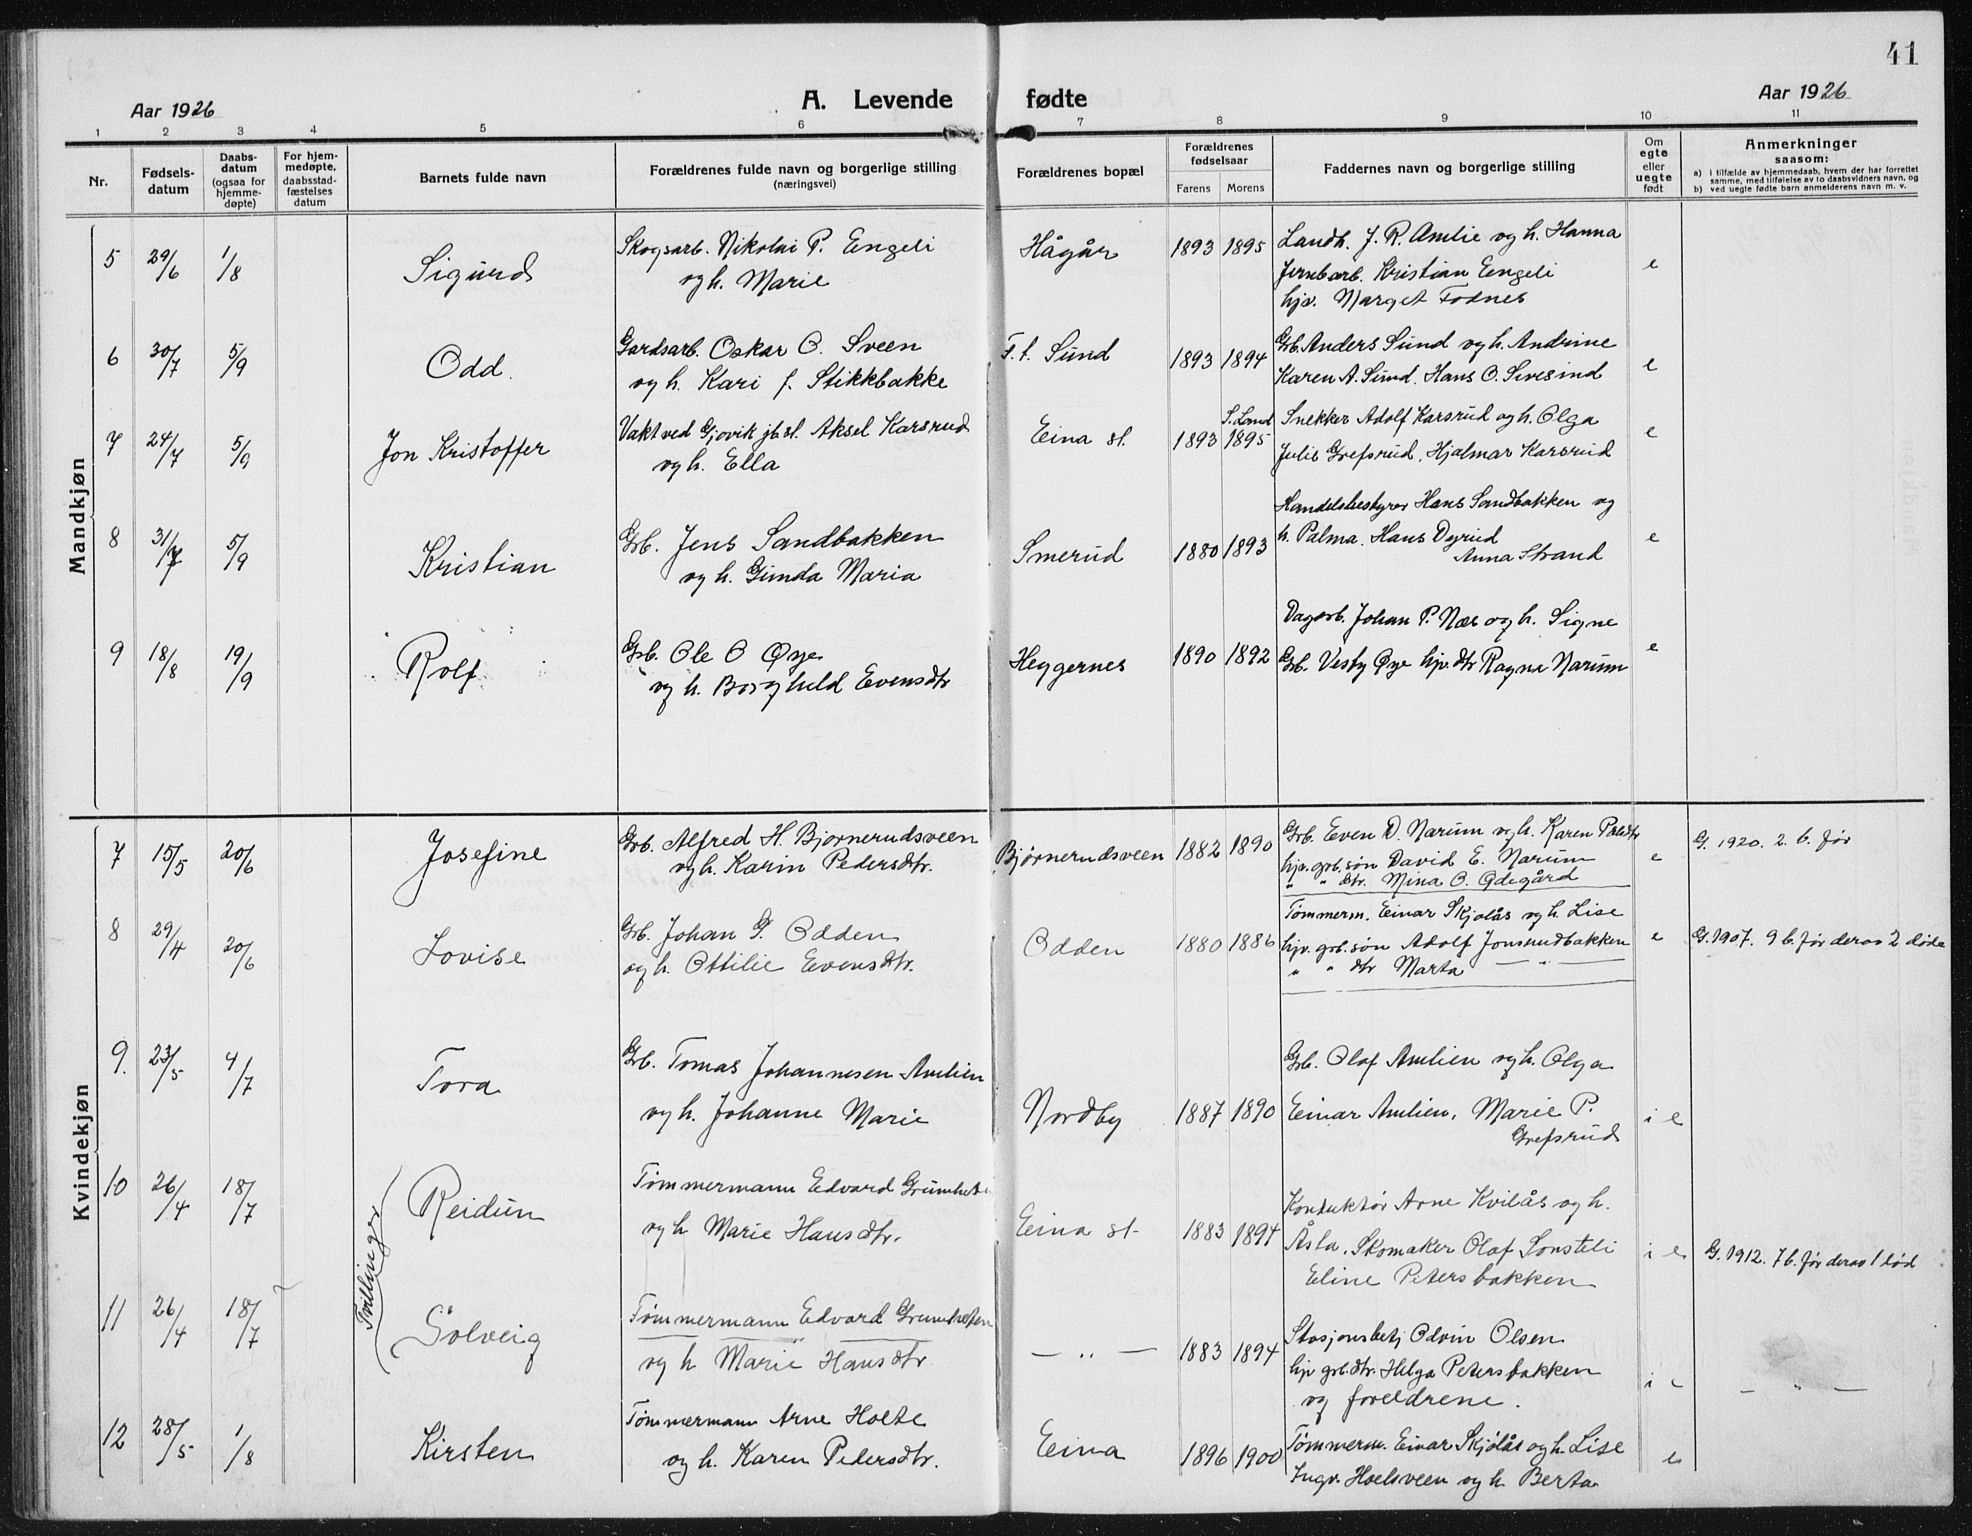 41
Aar 1926
A. Levende fødte
Aar 1926
1 2 3 4 5 6 7 8 9 10 11
Nr.
Fødsels-
datum
Daabs-
datum
(ogsaa for
hjemme-
døpte)
For hjem-
medøpte,
daabsstad-
fæstelses
datum
Barnets fulde navn
Forældrenes fulde navn og borgerlige stilling
(næringsvei)
Forældrenes bopæl
Forældrenes
fødselsaar
Farens Morens
Faddernes navn og borgerlige stilling
Om
egte
eller
uegte
født
Anmerkninger
saasom:
a) i tilfælde av hjemmedaab, hvem der har forrettet
samme, med tilføielse av to daabsvidners navn, og
b) ved uegte fødte barn anmelderens navn m. v.
Mandkjøn
5 29/6 1/8 Sigurd
Skogsarb. Nikolai P. Engeli
og h. Marie
Hågår 1893 1895
Landh. J. R. Amlie og h. Hanna
Jernbarb. Kristian Eengeli
hjv. Marget Fodnes
e
6 30/7 5/9 Odd.
Gardsarb. Oskar O. Sveen
og h. Kari f. Stikkbakke
F. t. Sund 1893 1894
Grb. Anders Sund og h. Andrine
Karen A. Sund. Hans O. Sivesind
e
7 24/7 5/9 Jon Kristoffer
Vakt ved Gjøvik jb.st. Aksel Karsrud
og h. Ella
Eina st. 1893 S. Land 1895
Snekker Adolf Karsrud og h. Olga
Julie Grefsrud, Hjalmar Karsrud
e
8 31/7 5/9 Kristian
Grb. Jens Sandbakken
og h. Gimda Maria
Smerud 1880 1893
Handelsbestyrer Hans Sandbakken og
h. Palma. Hans Dyrud
Anna Strand
e
9 18/8 19/9 Rolf
Grb. Ole O Øye
og h. Borghild Evensdtr
Heggernes 1890 1892
Dagarb. Johan P. Næs og h. Signe
Grb. Vesty Øye hjv. dtr Ragna Narum
e
Kvindekjøn
7 15/5 20/6 Josefine
Grb. Alfred H. Bjørnerudsveen
og h. Karin Pedersdtr.
Bjørnerudsveen 1882 1890
Grb. Even D. Narum og h. Karen
hjv. grb. søn David E. Narum
" " dtr. Mina O. Ødegård
e
G. 1920. 2. b. før
8 29/4 20/6 Lovise
Grb. Johan G. Odden
og h. Ottilie Evensdtr.
Odden 1880 1886
Tømmerm. Einar Skjølås og h. Lise
hjv. grb. søn Adolf Jonsrudbakken
" " dtr Marta — " —
e
G. 1907. 9 b. før derav 2 døde
9. 23/5 4/7 Tora
Grb. Tomas Johannesen Amlien
og h. Johanne Marie
Nordby 1887 1890
Grb. Olaf Amlien og h. Olga
Einar Amlien, Marie P.
Grefsrud
i e
Tvillinger
10 26/4 18/7 Reidun
Tømmermann Edvard
og h Marie Hansdtr.
Eina st. 1883 1894
Konduktør Arne Kvilås og h.
Åsta. Skomaker Olaf Sonsteli
Eline Petersbakken
i e
G. 1912. 7 b. før derav 1 død
11 26/4 18/7 Solveig
Tømmermann Edvard
og h Marie Hansdtr
— " — 1883 1894
Stasjonsbetj Odvin Olsen
hjv grb. dtr. Helga Petersbakken
og foreldrene.
i e
— " —
12 28/5 1/8 Kirsten
Tømmermann Arne Holte
og h. Karen Pedersdtr.
Eina 1896 1900
Tømmerm. Einar Skjølås og h. Lise
Ingv. Hoelsveen og h. Berta
e